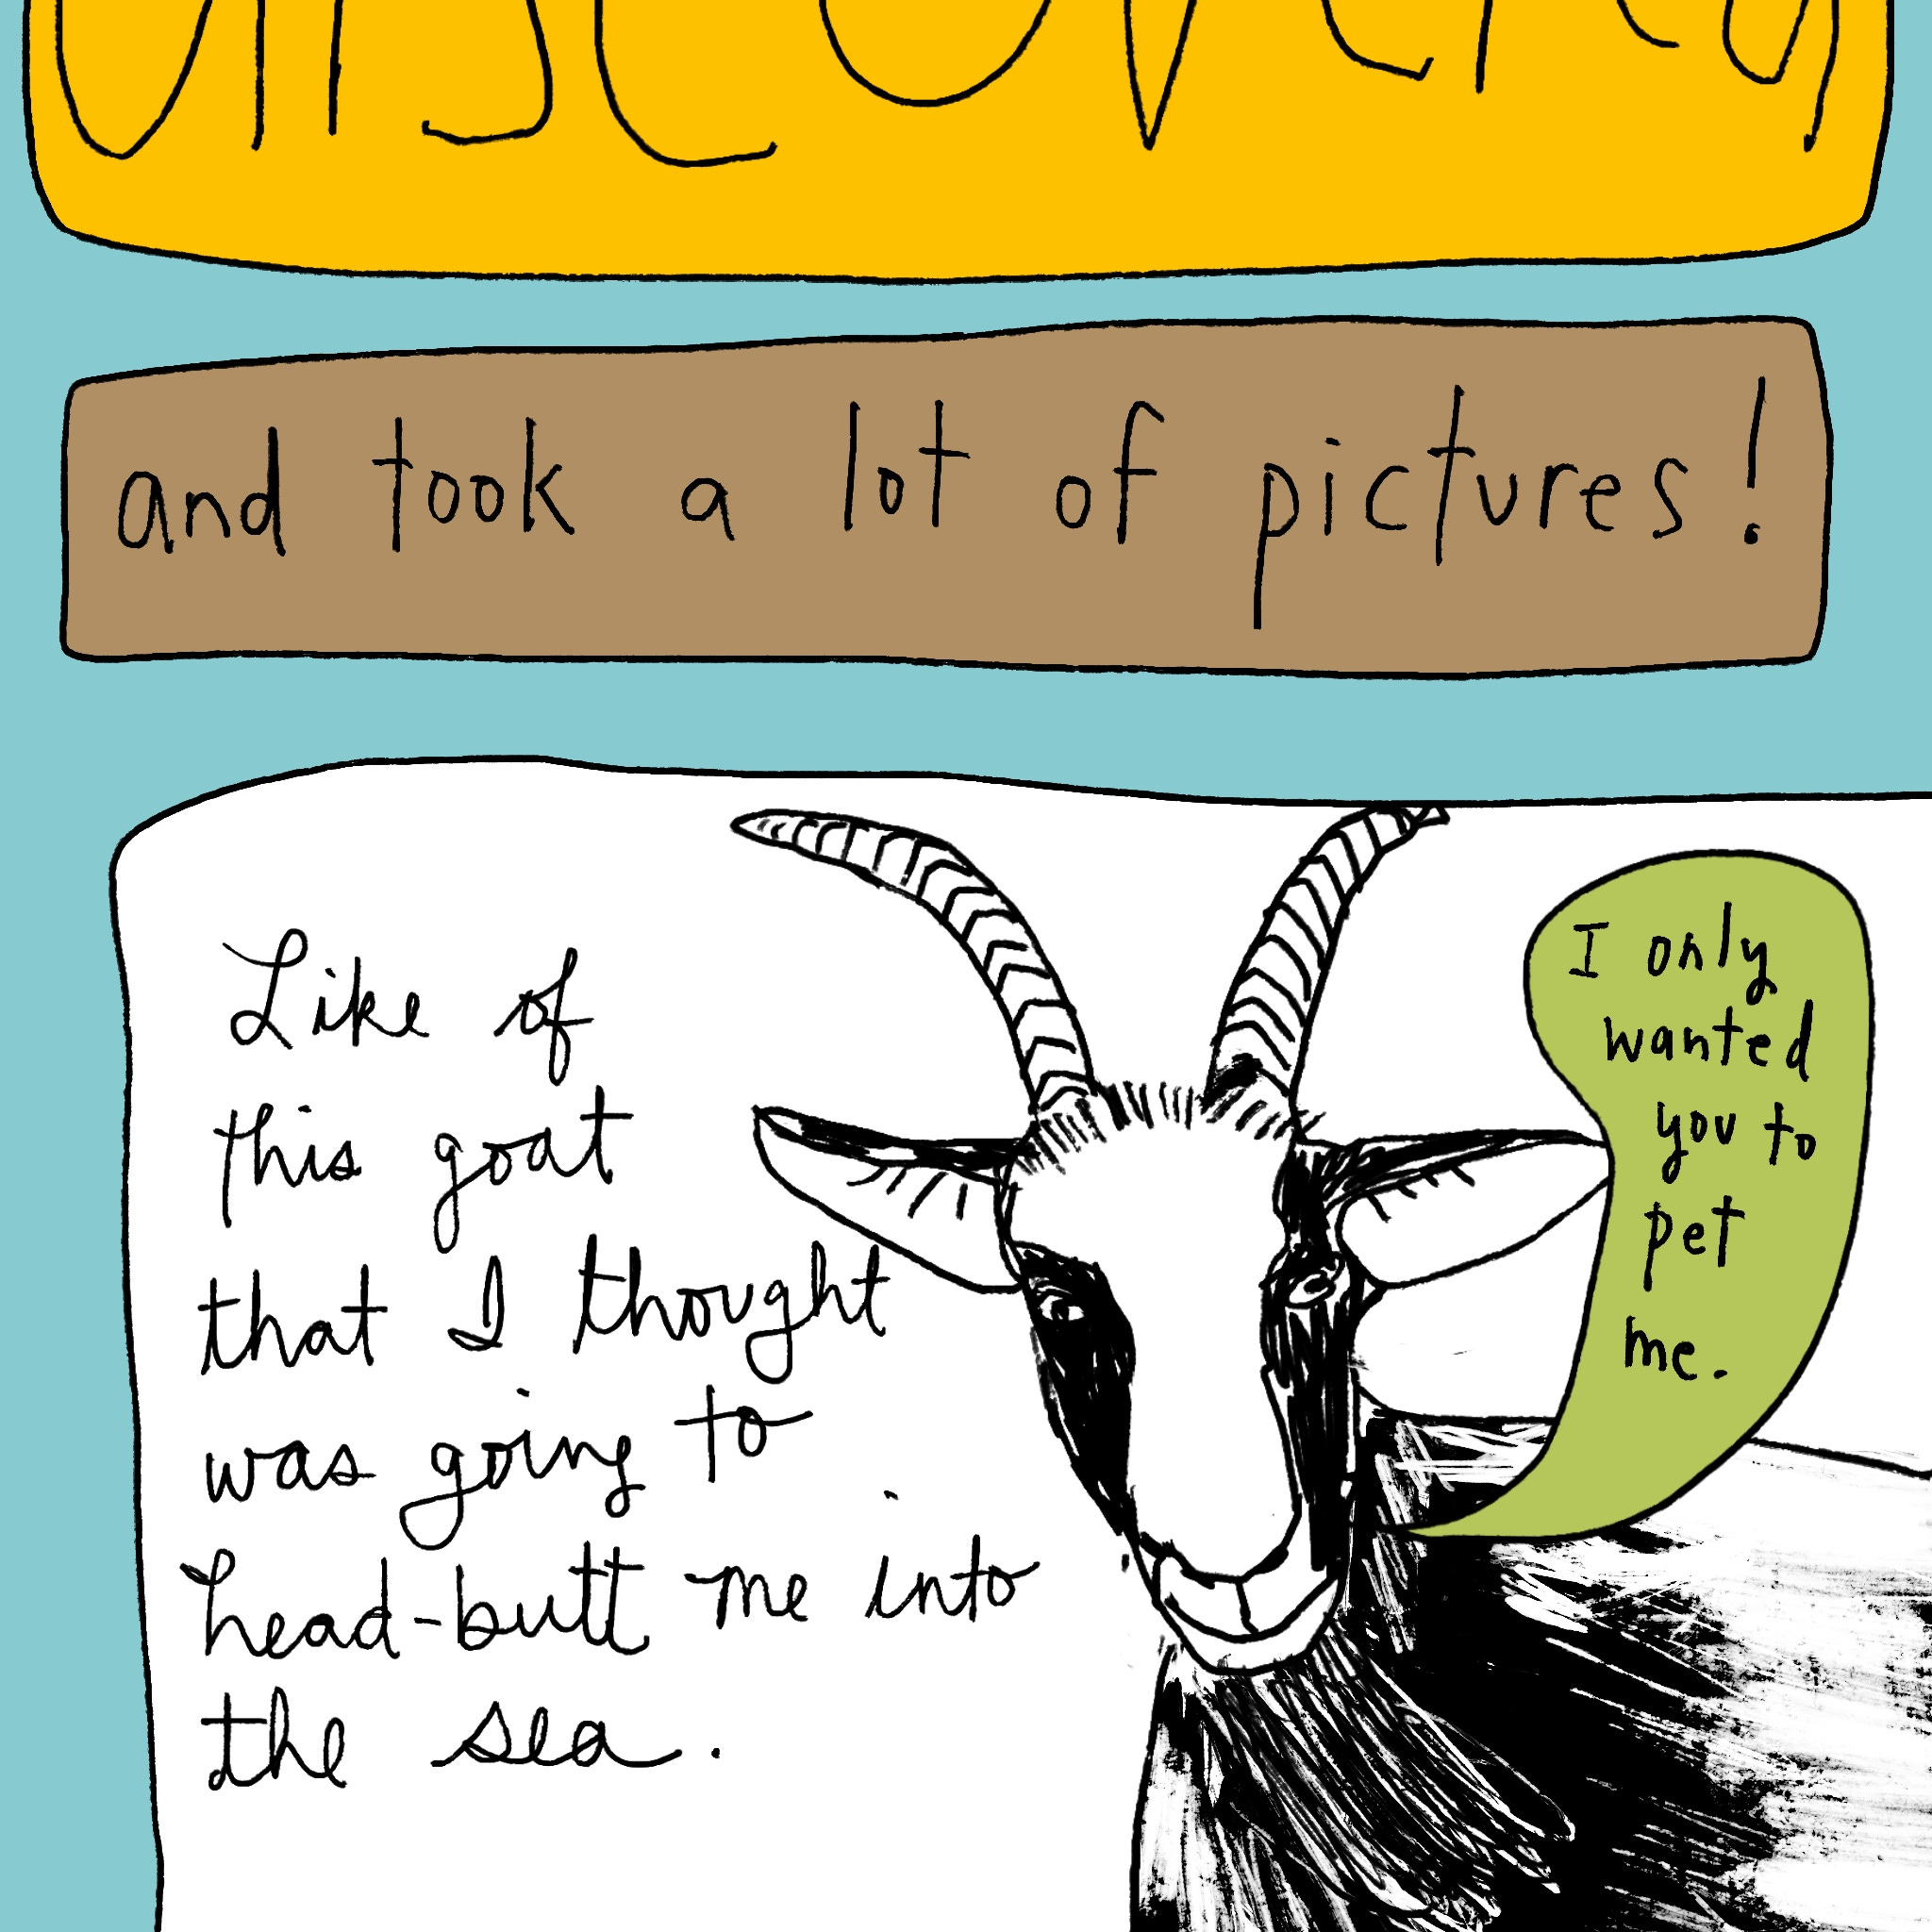 and took a lot of pictures!
Like of
this goat
that I thought
was going to
head-butt me into
the sea.
I only
wanted
you to
pet
me.